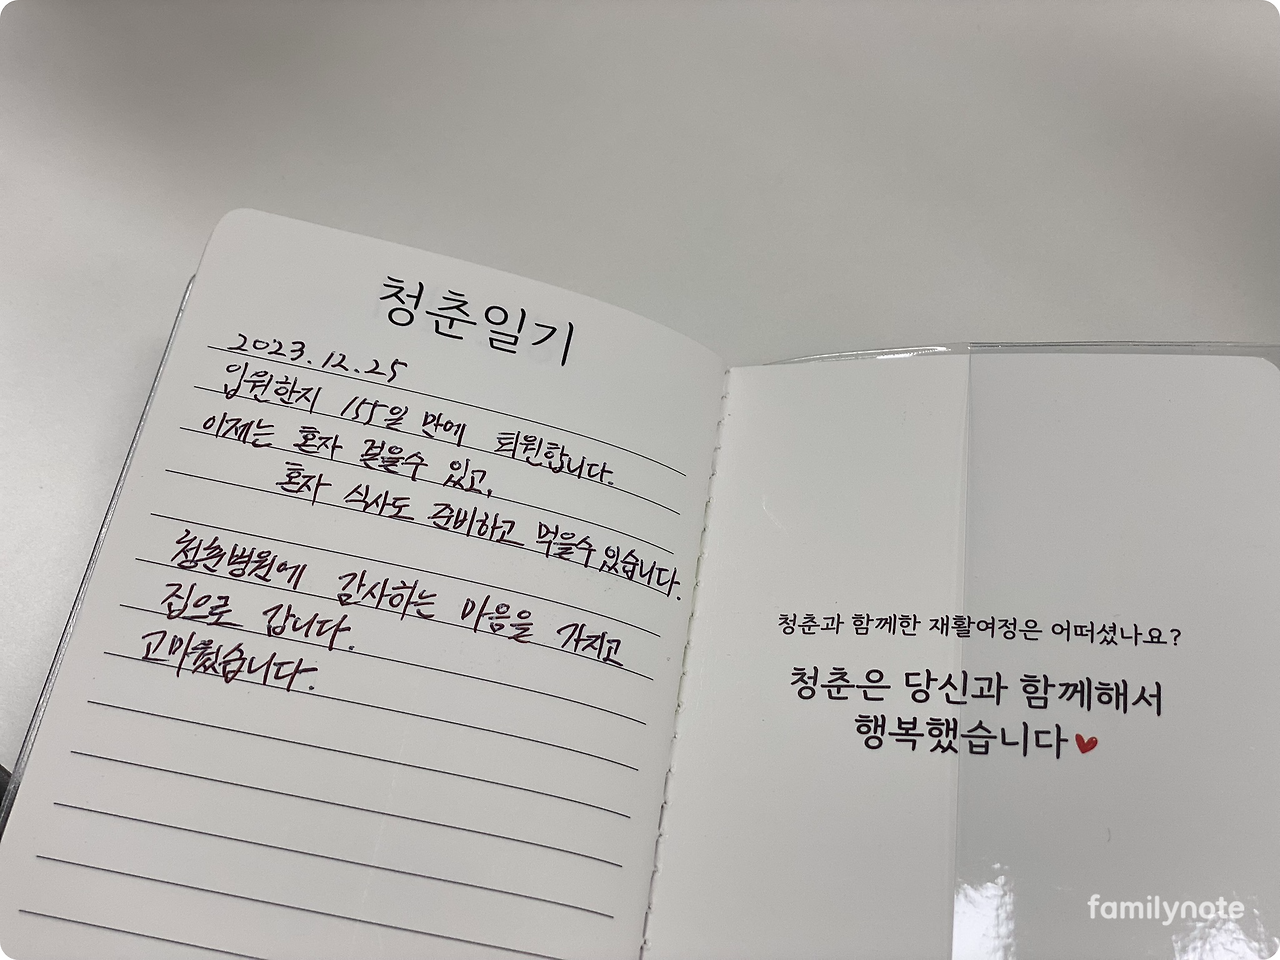 청춘일기
2023.12.25
입원한지 155일 만에 퇴원합니다.
이제는 혼자 걸을수 있고,
혼자 식사도 준비하고 먹을수있습니다.
청춘병원에 감사하는 마음을 가지고
집으로 갑니다.
고마웠습니다.
청춘과 함께한 재활여정은 어떠셨나요?
청춘은 당신과 함께해서
행복했습니다
familynote